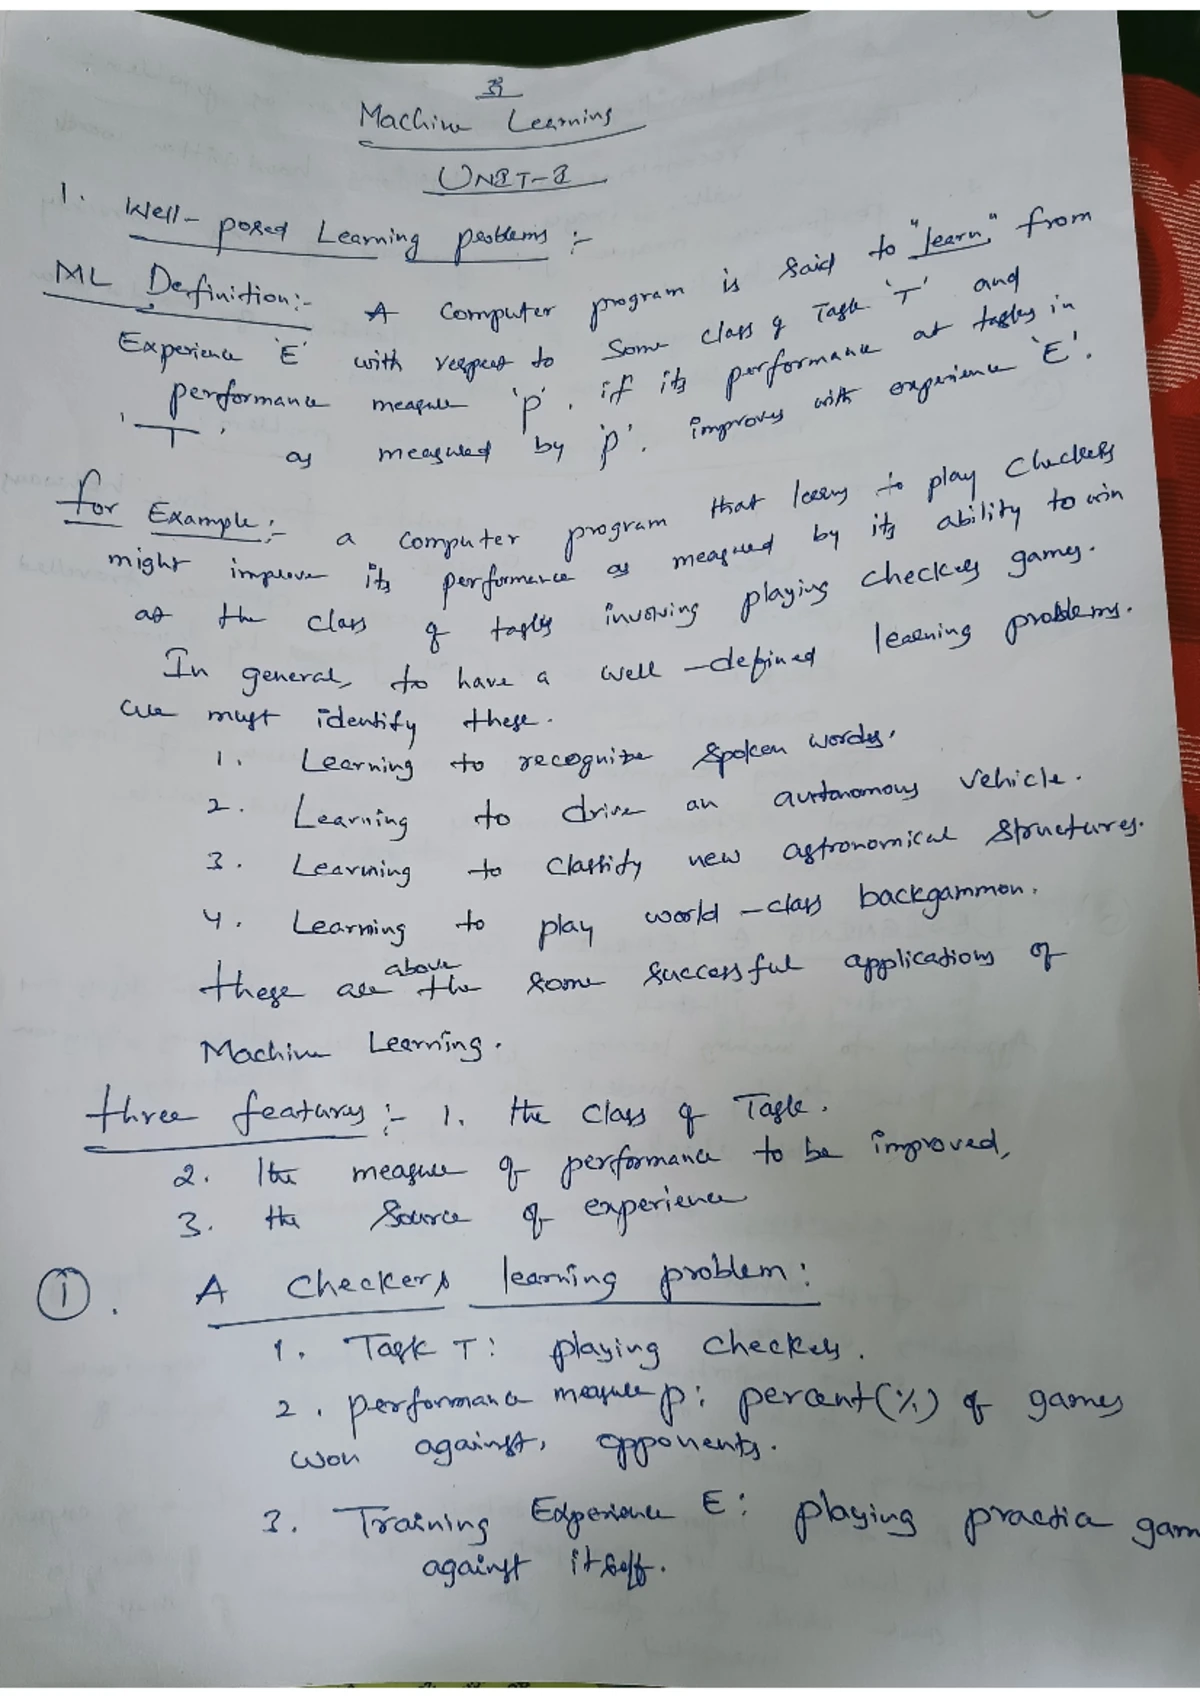 Machine Learning
UNIT-I
1. Well-posed Learning problems :-
ML Definition:- A Computer program is said to "learn" from
Experience 'E' with respect to Some class of Task 'T' and
performance measure 'p', if its performance at tasks in
'T' as measured by 'p'. improves with experience 'E'.
for Example:- a computer program that learns to play Checkers
might improve its performance as measured by its ability to win
at the class of tasks involving playing checkers games.
In general, to have a well-defined learning problems.
we must identify these.
1. Learning to recognize Spoken words.
2. Learning to drive an autonomous vehicle.
3. Learning to classify new astronomical structures.
4. Learning to play world-class backgammon.
these are the above some successful applications of
Machine Learning.
three features :- 1. the class of Task.
2. the measure of performance to be improved,
3. the source of experience
① . A checkers learning problem:
1. Task T: playing checkers.
2. performance measure p: percent(%) of games
won against, opponents.
3. Training Experience E: playing practice gam
against itself.